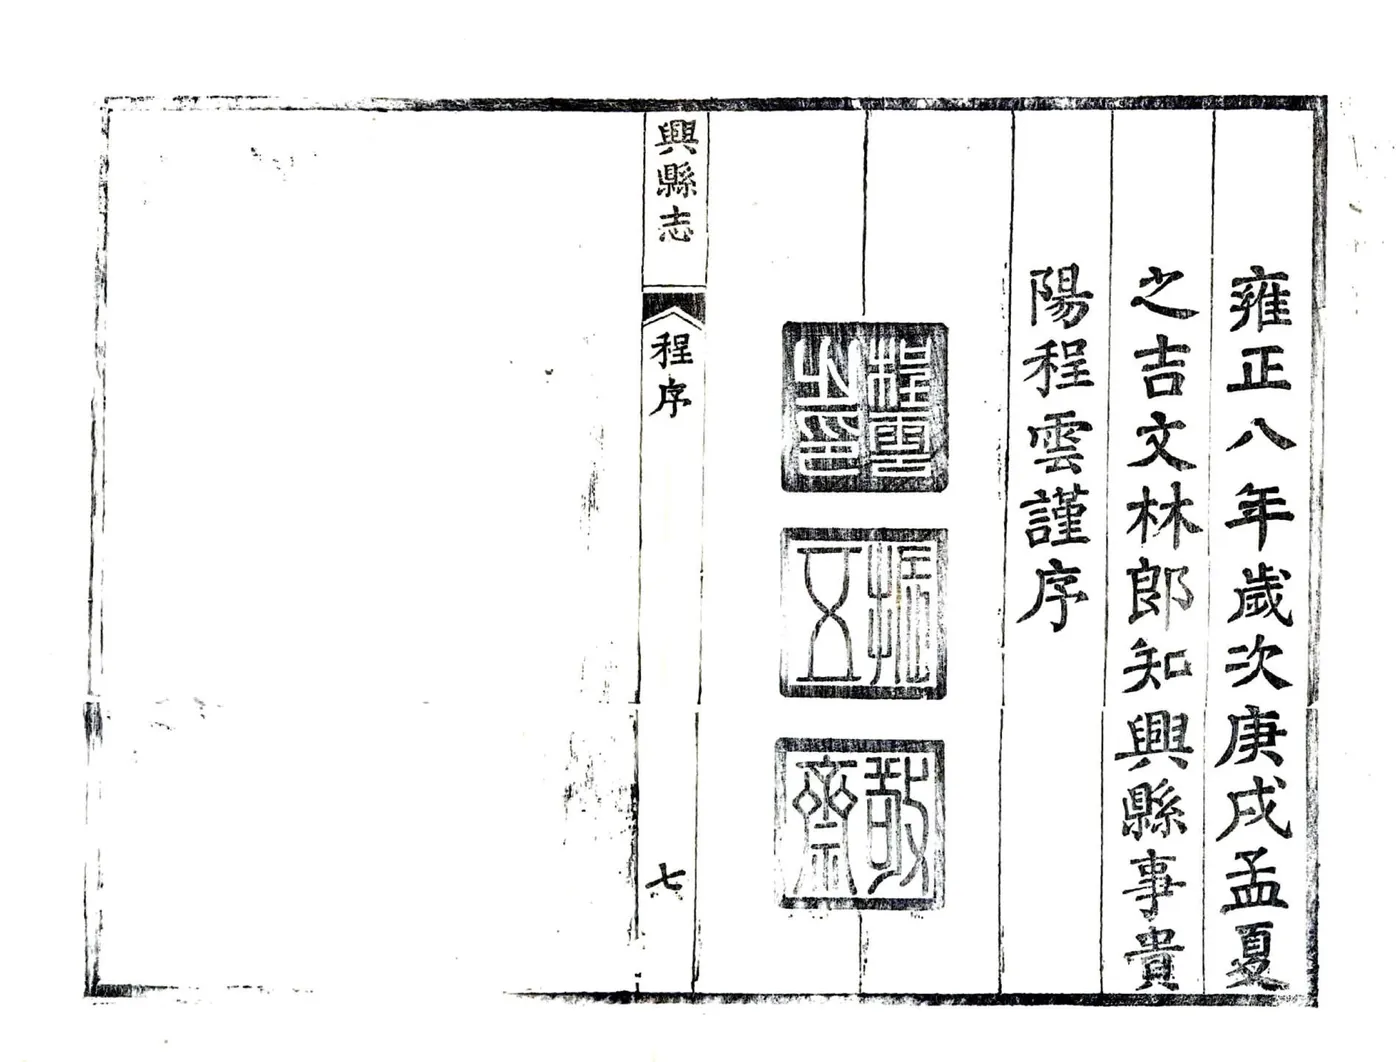 雍正八年歲次庚戌孟夏
之吉文林郎知興縣事貴
陽程雲謹序
程雲之印
敬齋
興縣志
程序
七